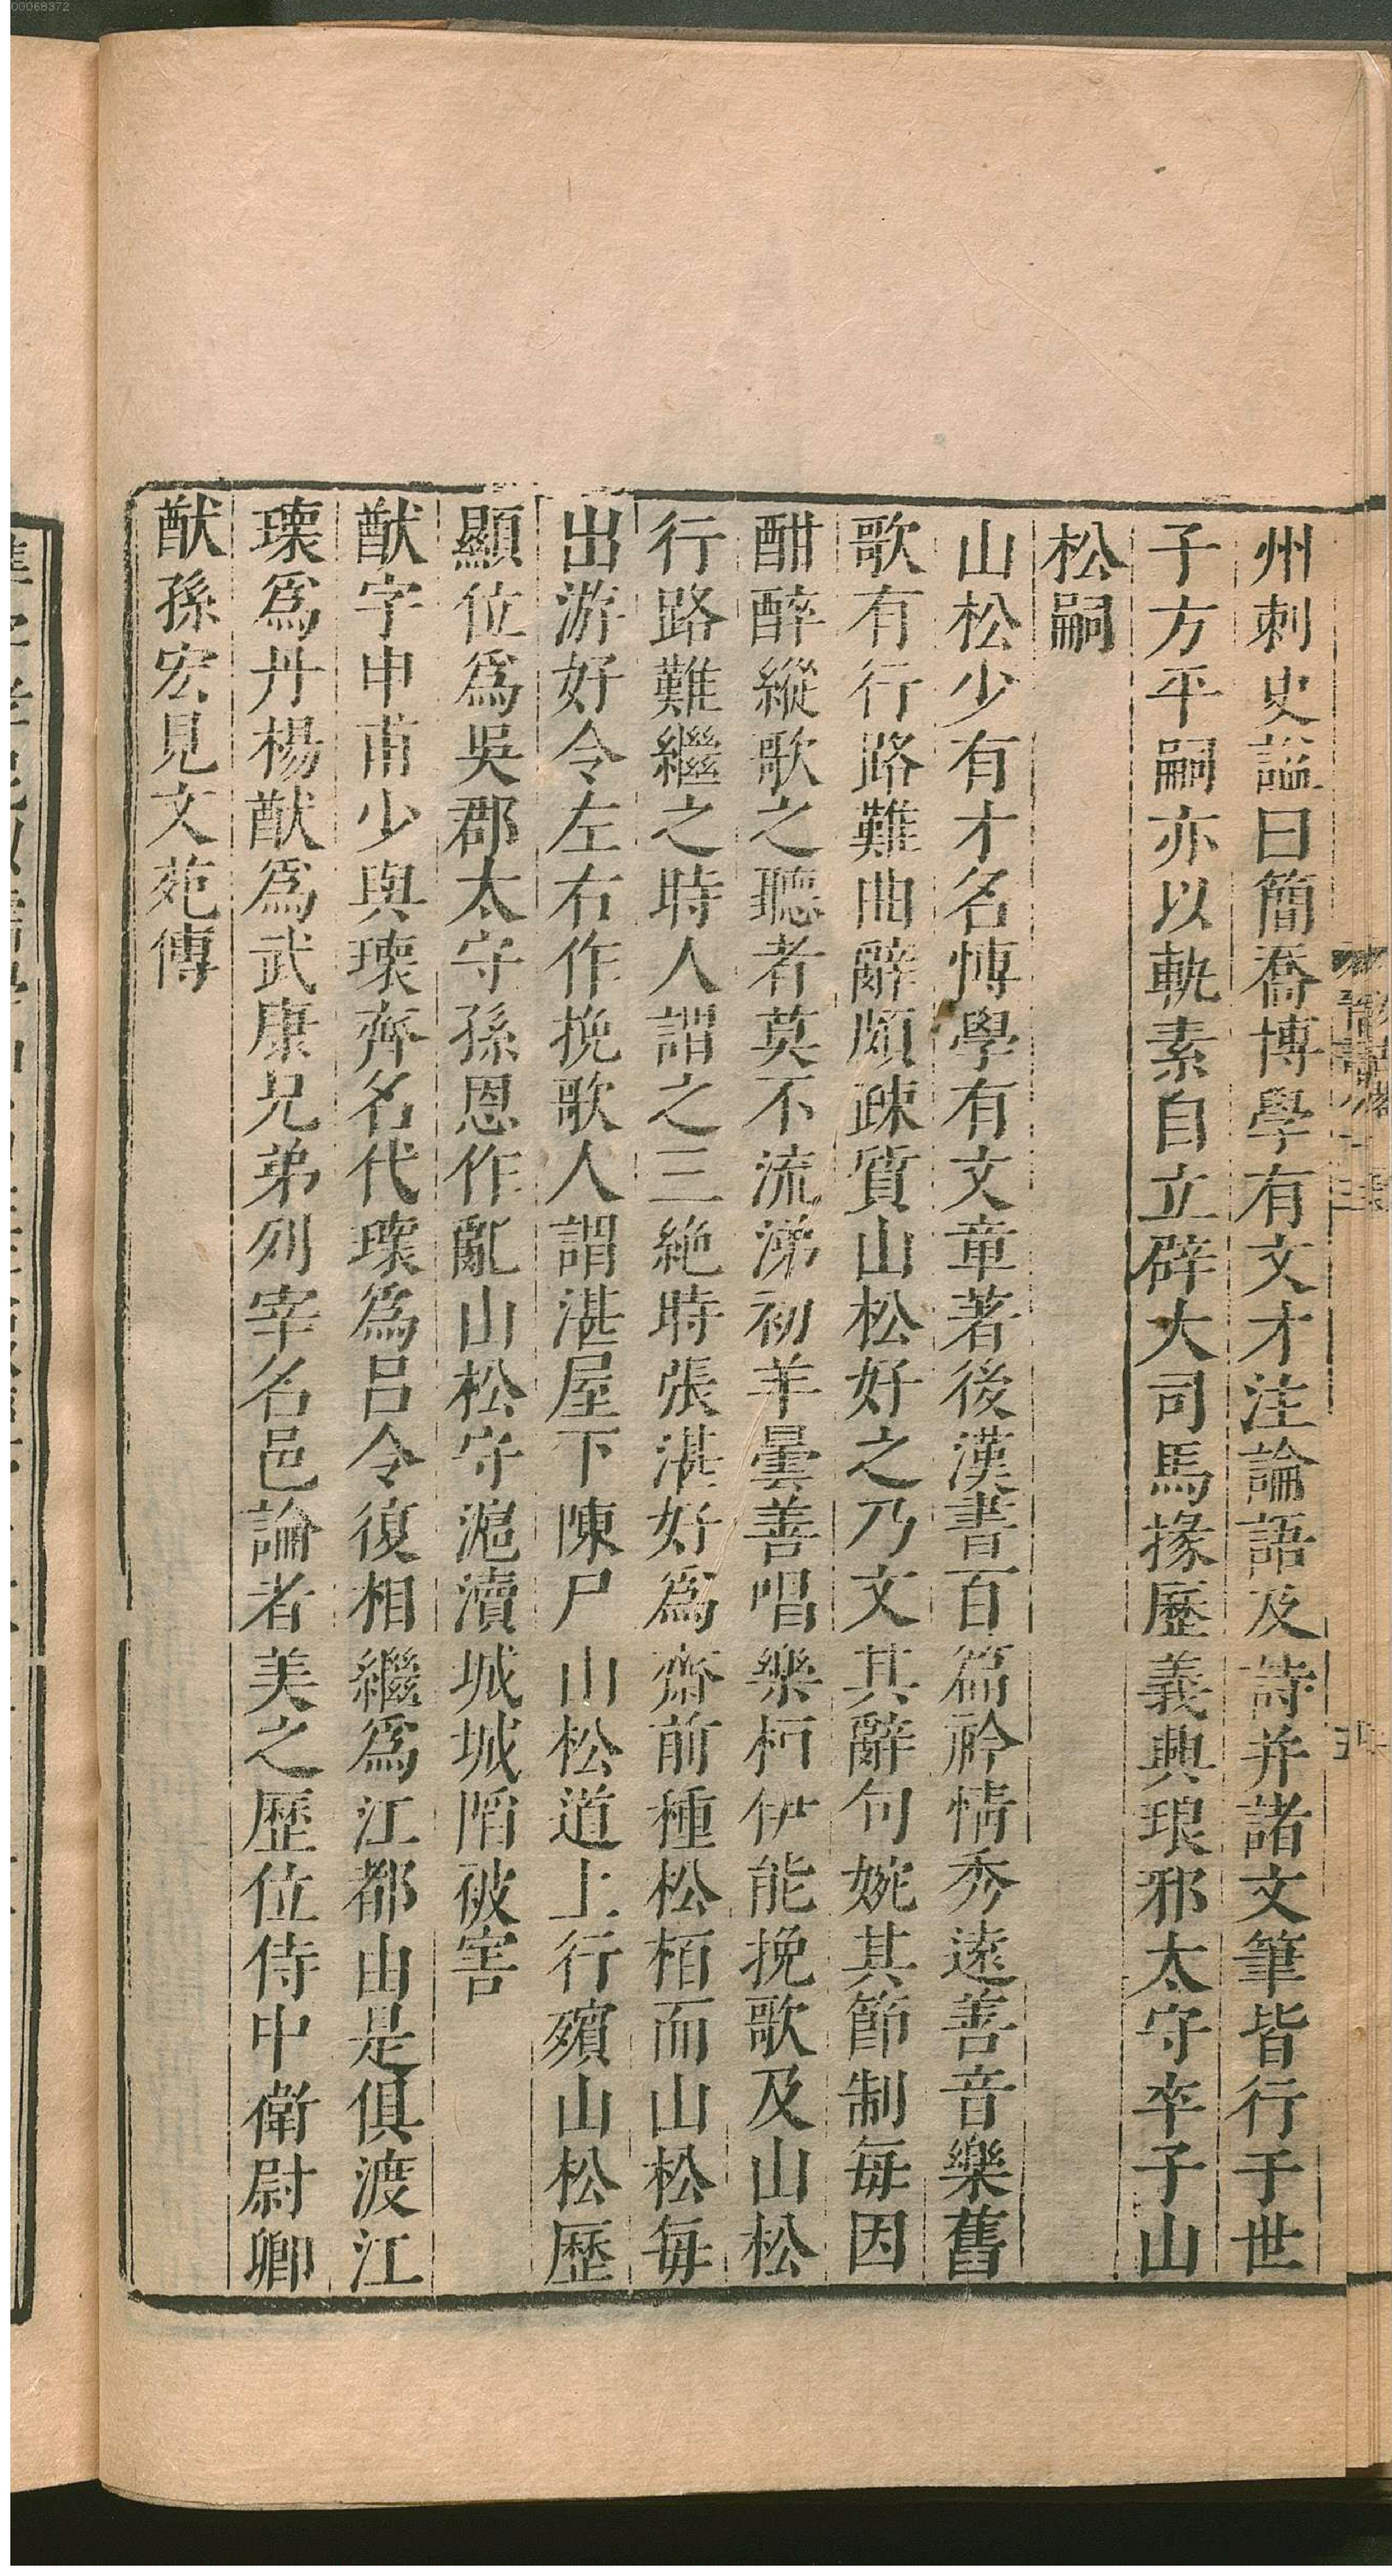 州刺史謚曰簡喬博學有文才注論語及詩并諸文筆皆行于世
子方平嗣亦以軌素自立辟大司馬掾歷義興琅邪太守卒子山
松嗣
山松少有才名博學有文章著後漢書百篇衿情秀遠善音樂舊
歌有行路難曲辭頗疎質山松好之乃文其辭句婉其節制每因
酣醉縱歌之聽者莫不流涕初羊曇善唱樂桓伊能挽歌及山松
行路難繼之時人謂之三絶時張湛好爲齋前種松栢而山松每
出游好令左右作挽歌人謂湛屋下陳尸山松道上行殯山松歷
顯位爲吳郡太守孫恩作亂山松守滬瀆城城陷破害
猷字申甫少與瓌齊名代瓌爲呂令復相繼爲江都由是俱渡江
瓌爲丹楊猷爲武康兄弟列宰名邑論者美之歷位侍中衛尉卿
猷孫宏見文苑傳
00068372